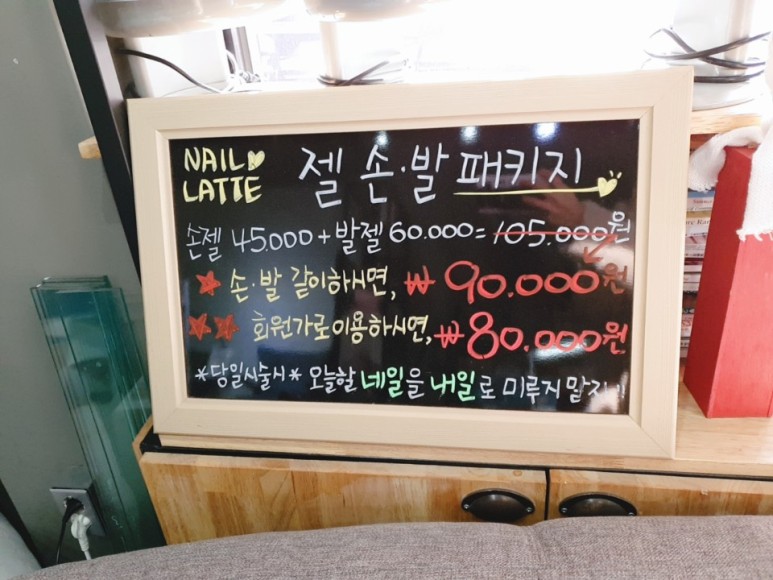 NAIL LATTE
젤 손·발 패키지
손젤 45.000+발젤 60.000=105.000원
손·발 같이하시면, ₩ 90.000원
회원가로이용하시면, ₩80.000원
*당일시술시* 오늘할 네일을 내일로 미루지말자!!